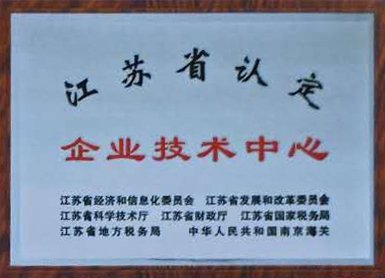 江苏省认定
企业技术中心
江苏省经济和信息化委员会 江苏省发展和改革委员会
江苏省科学技术厅 江苏省财政厅 江苏省国家税务局
江苏省地方税务局 中华人民共和国南京海关